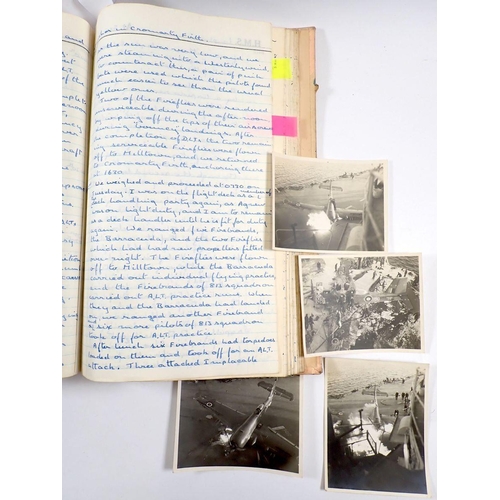 in Cromarty Firth.
H.M.S.
the sun was very low, and we
were steaming into a Westerly wind.
to counteract this, a pair of pink
bats were used which the pilots found
much easier to see than the usual
yellow ones.
Two of the Fireflies were rendered
unserviceable during the afternoon
by nipping off the tips of their airscrews
during landings. After
the completion of D.L.T.s the two remain
ing serviceable Fireflies were flown
off to Milltown, and we returned
to Cromarty Firth, anchoring there
at 1630.
We weighed and proceeded at 0730 on
Tuesday. I was on the flight deck as a member of
deck handling party again, as Agnew
was on light duty, and I am to remain
as a deck handler until he is fit for duty
again. We ranged five Firebrands
the Barracuda, and the two Fireflies
which had had new propellers fitted
over-night. The Fireflies were flown
off to Milltown, while the Barracuda
carried out individual flying practice
and the Firebrands of 813 squadron
carried out A.L.T. practice runs. When
they and the Barracuda had landed
on we ranged another Firebrand
and six more pilots of 813 squadron
took off for A.L.T. practice.
After lunch six Firebrands had torpedoes
loaded on them and took off for an A.L.T.
attack. Three attacked Implacable